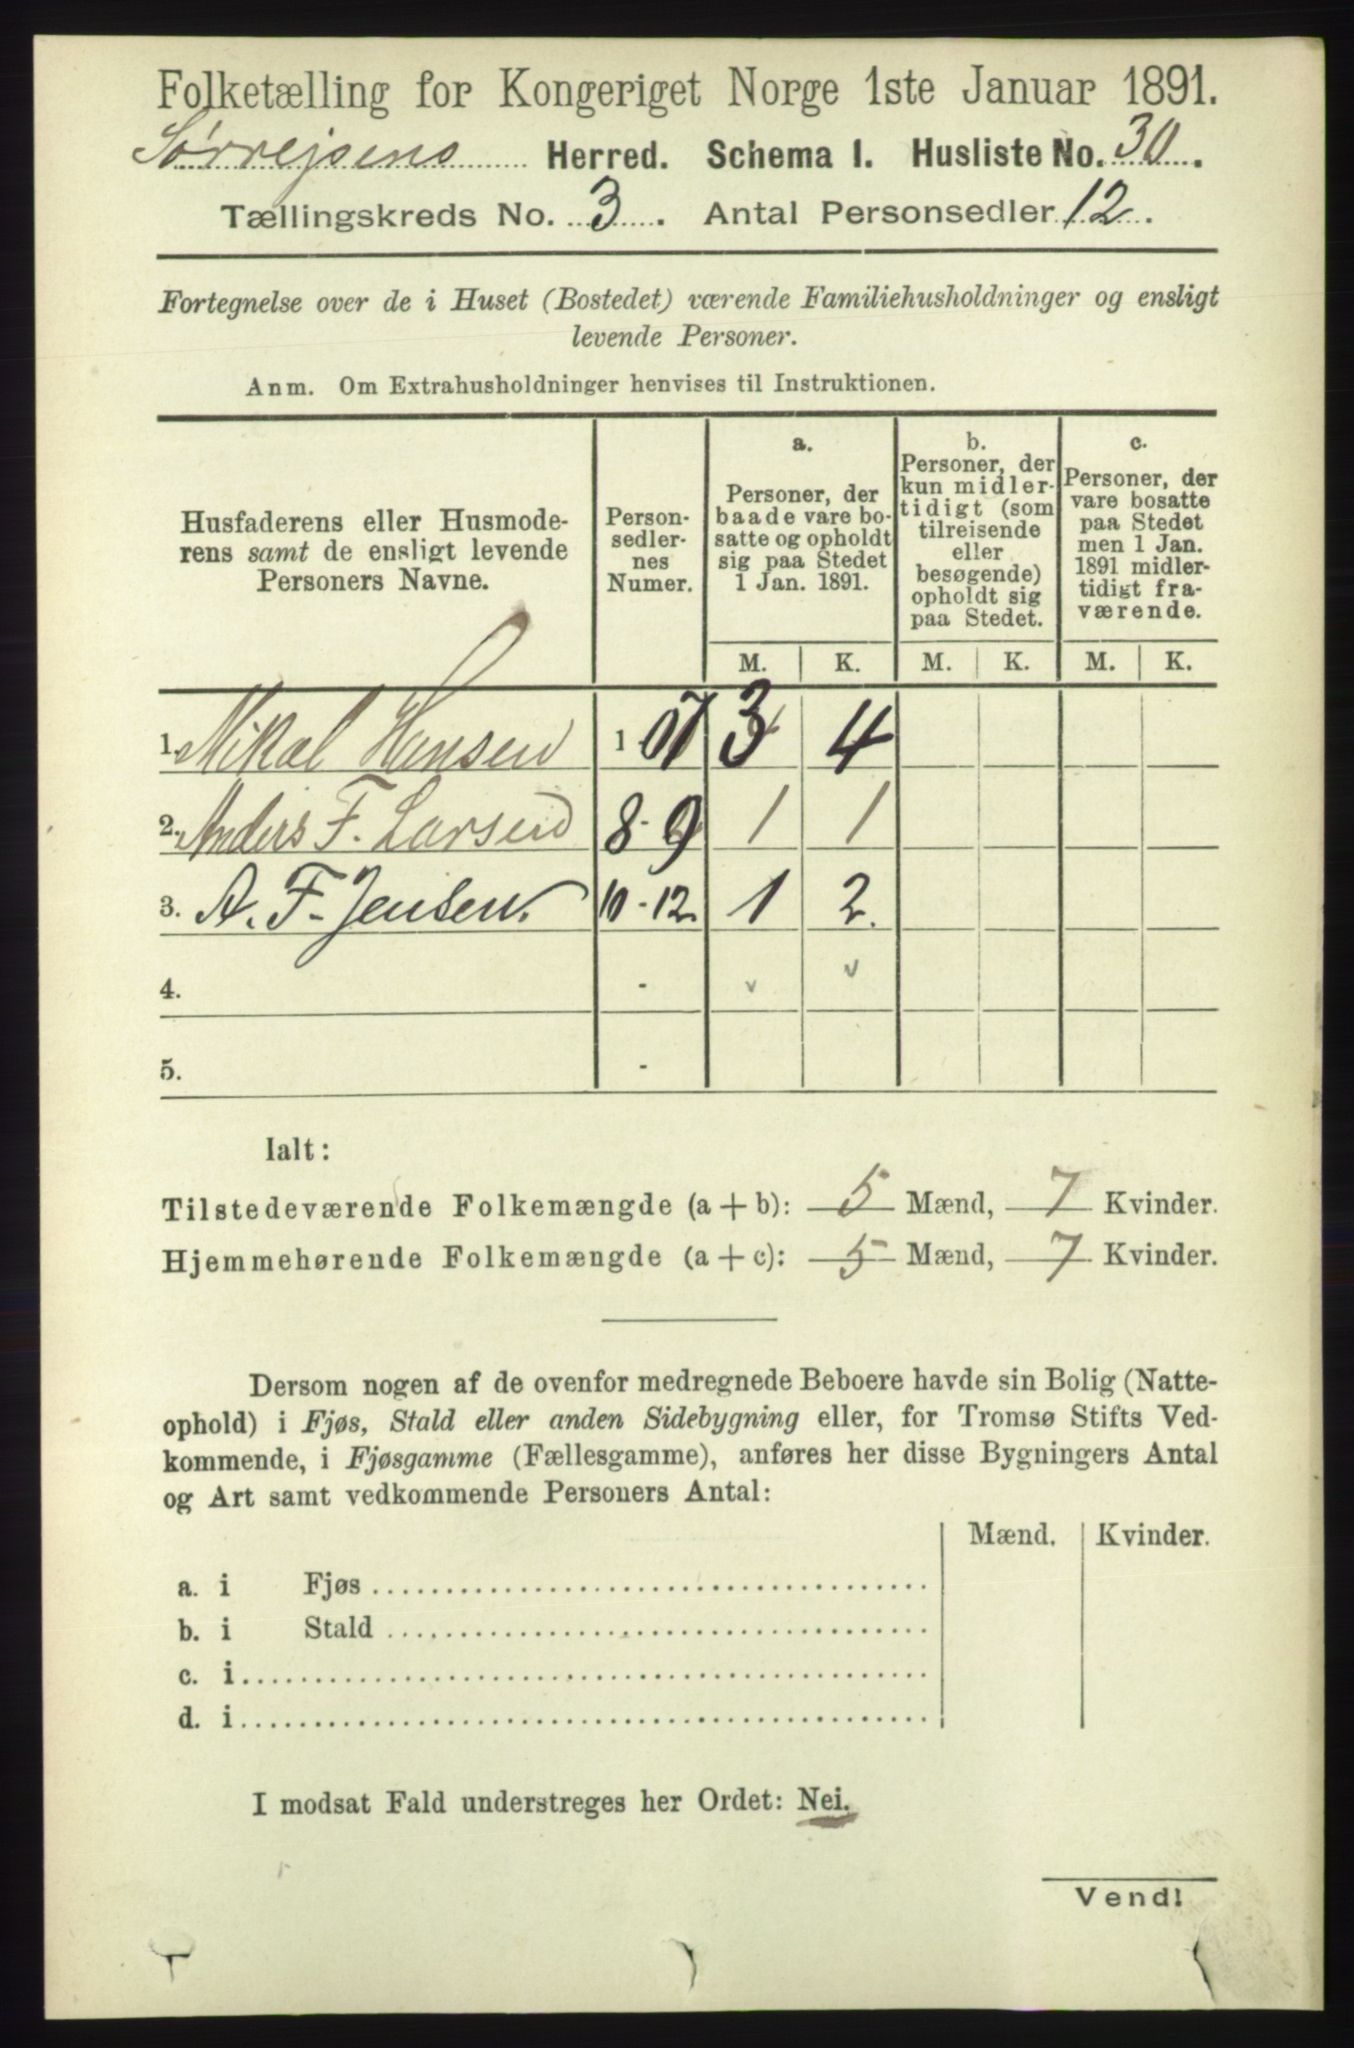 Folketælling for Kongeriget Norge 1ste Januar 1891.
Sørrejsens Herred. Schema I. Husliste No. 30.
Tællingskreds No. 3. Antal Personsedler 12.
Fortegnelse over de i Huset (Bostedet) værende Familiehusholdninger og ensligt
levende Personer.
Anm. Om Extrahusholdninger henvises til Instruktionen.
Husfaderens eller Husmode-
rens samt de ensligt levende
Personers Navne.
Person-
sedler-
nes
Numer.
a.
Personer, der
baade vare bo-
satte og opholdt
sig paa Stedet
1 Jan. 1891.
b.
Personer, der
kun midler-
tidigt (som
tilreisende
eller
besøgende)
opholdt sig
paa Stedet.
c.
Personer, der
vare bosatte
paa Stedet
men 1 Jan.
1891 midler-
tidigt fra-
værende.
M. K. M. K. M. K.
1. Mikal Hansen 1 07 3 4
2. Anders F. Larsen 8-9 1 1
3. A. F. Jensen. 10-12. 1 2.
4. - v v
5. -
Ialt:
Tilstedeværende Folkemængde (a + b): 5 Mænd, 7 Kvinder.
Hjemmehørende Folkemængde (a + c): 5 Mænd, 7 Kvinder.
Dersom nogen af de ovenfor medregnede Beboere havde sin Bolig (Natte-
ophold) i Fjøs, Stald eller anden Sidebygning eller, for Tromsø Stifts Ved-
kommende, i Fjøsgamme (Fællesgamme), anføres her disse Bygningers Antal
og Art samt vedkommende Personers Antal:
Mænd. Kvinder.
a. i Fjøs
b. i Stald
c. i
d. i
I modsat Fald understreges her Ordet: Nei.
Vend!